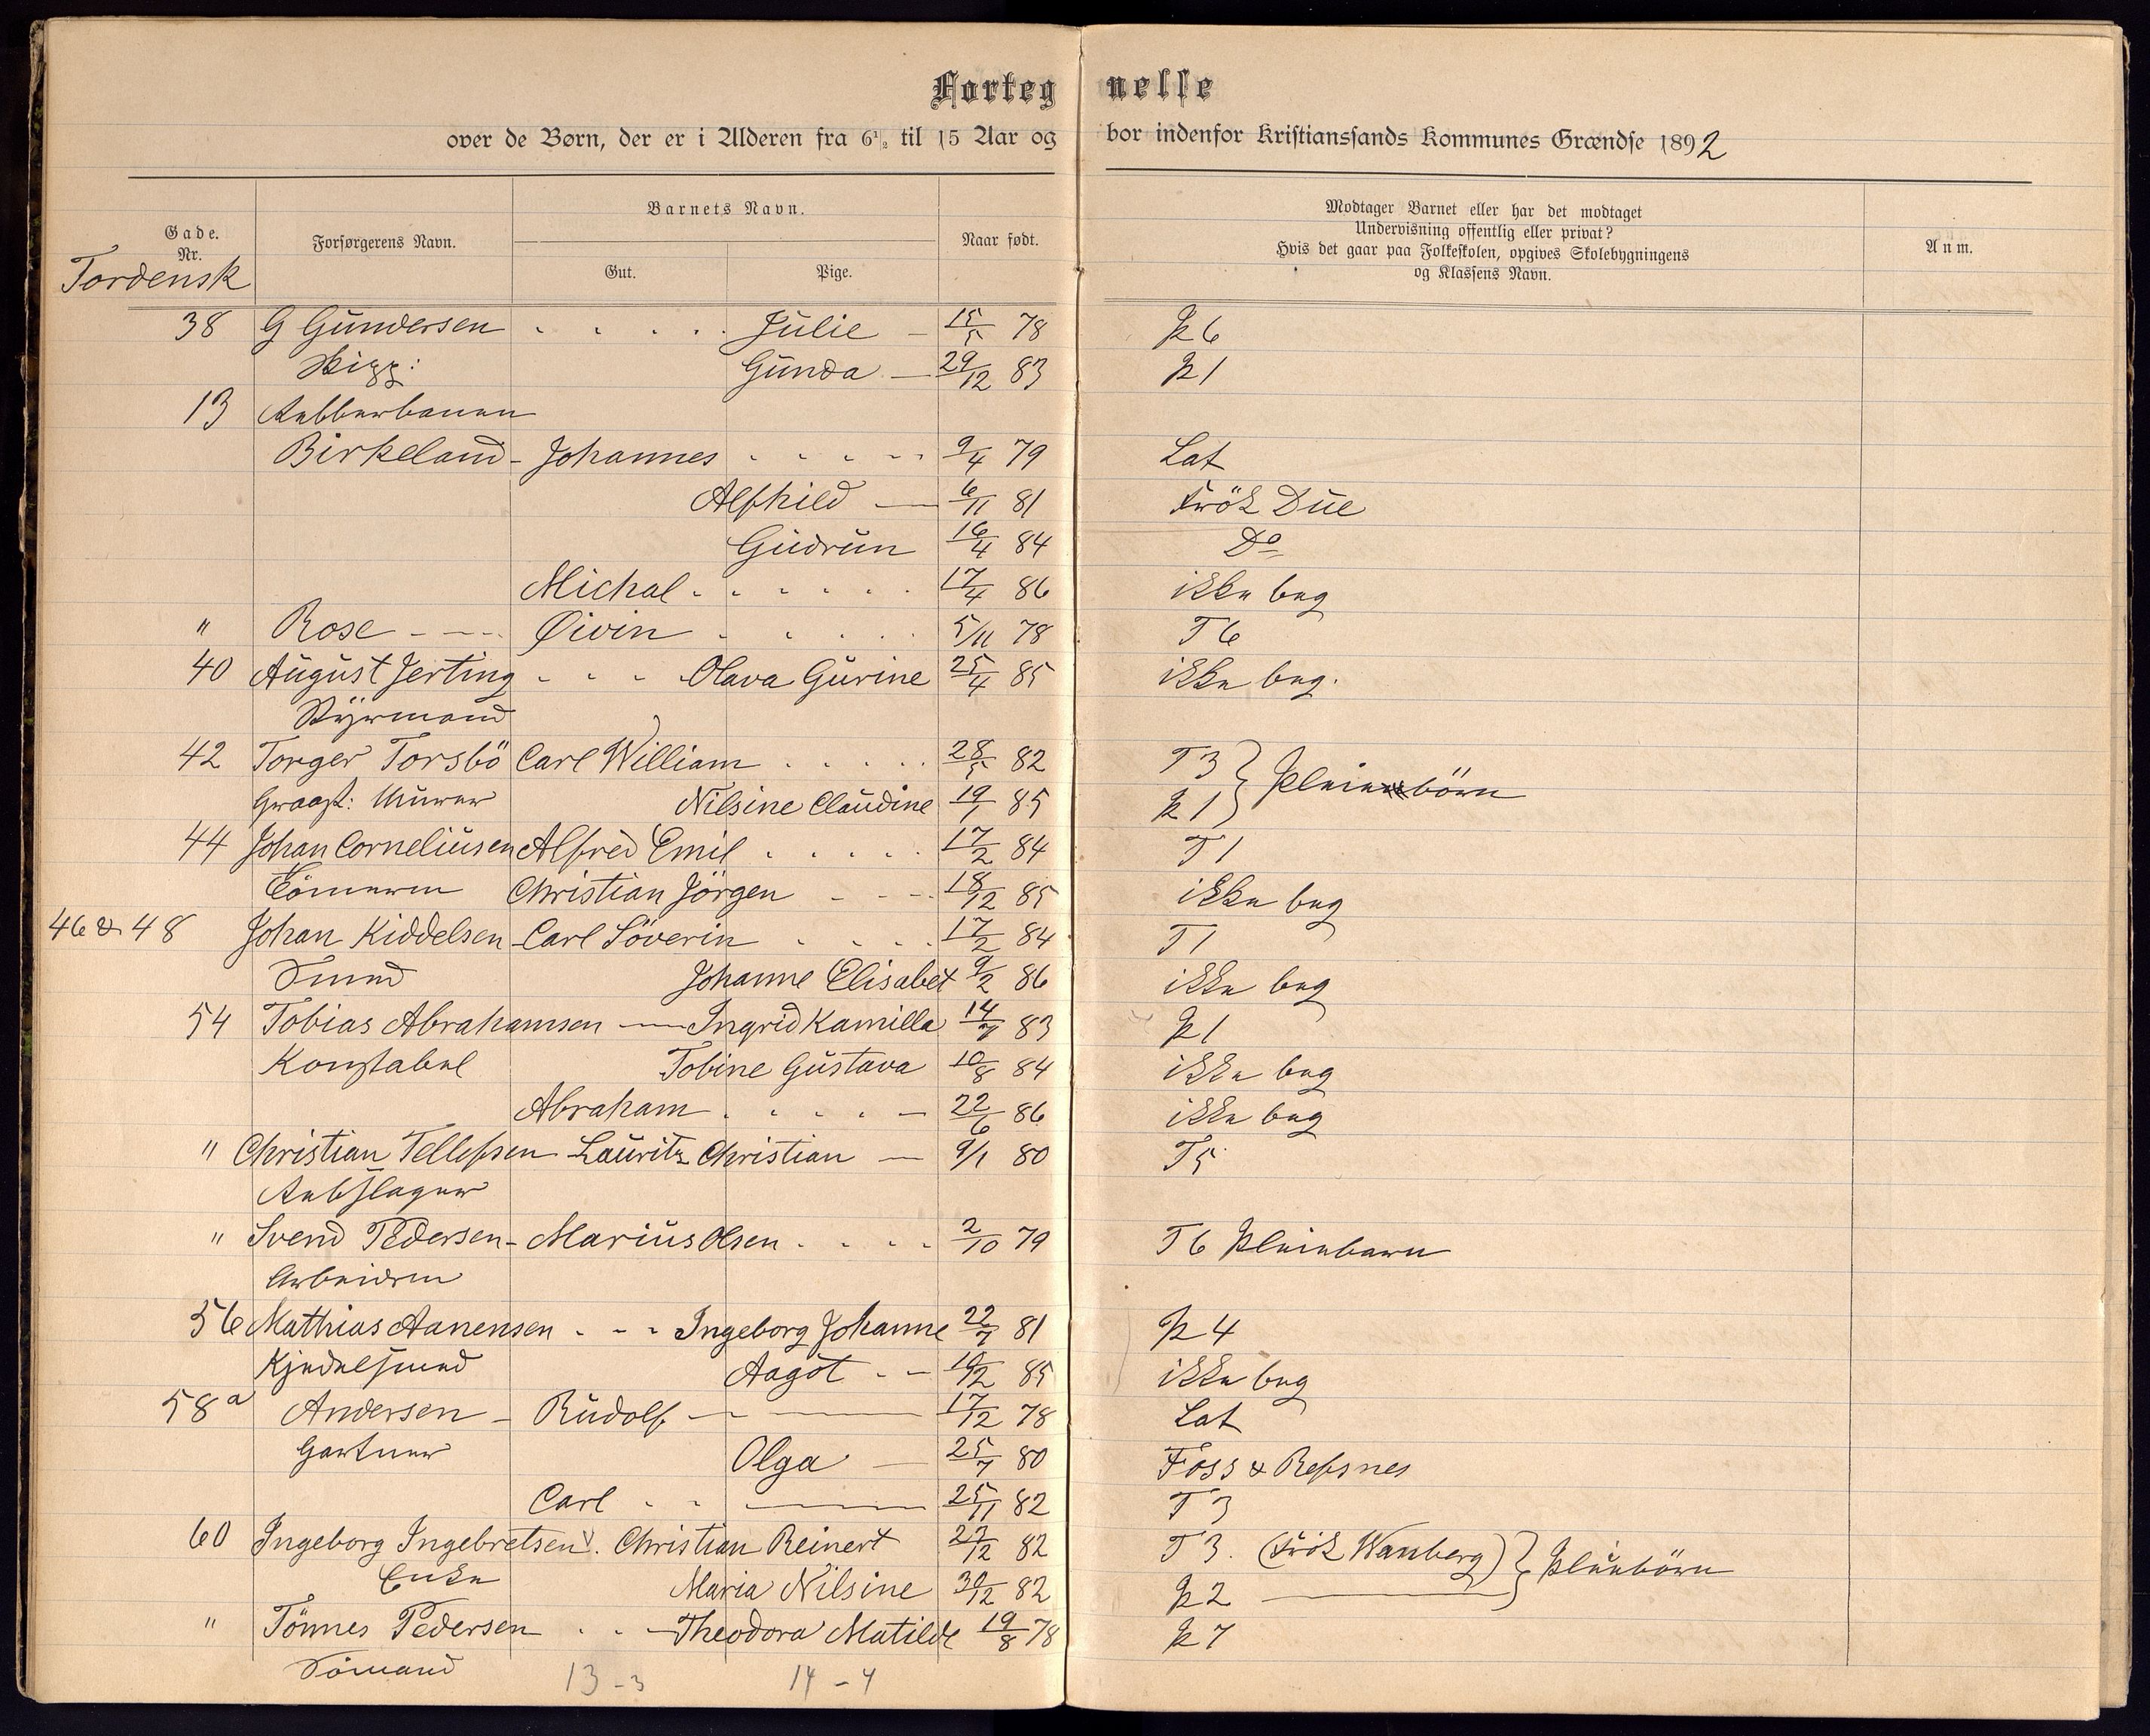 Forteg nelse
over de Børn, der er i Alderen fra 6 1/2 til 15 Aar og bor indenfor Kristianssands Kommunes Grændse 1892
Gade. Nr.
Forsørgerens Navn.
Barnets Navn.
Gut.
Pige.
Naar født.
Modtager Barnet eller har det modtaget
Undervisning offentlig eller privat?
Hvis det gaar paa Folkeskolen, opgives Skolebygningens
og Klassens Navn.
Anm.
Tordensk
38 G Gundersen Julie 15/5 78 K 6
Skipp: Gunda 29/12 83 K 1
13 Rebberbanen
Birkeland Johannes 9/4 79 Lat
Alfhild 6/11 81 Frök Due
Gudrun 16/4 84 Do
Michal 17/4 86 ikke beg
" Rose Øivin 5/11 78 T 6
40 August Jerting Olava Gurine 25/4 85 ikke beg.
Styrmand
42 Torger Torsbö Carl William 28/5 82 T 3
Murer Nilsine Claudine 19/1 85 K 1 } Pleiebörn
44 Johan Corneliusen Alfred Emil 17/2 84 T 1
Tömmerm Christian Jörgen 18/12 85 ikke beg
46 & 48 Johan Kiddelsen Carl Söverin 17/2 84 T 1
Smed Johanne Elisabet 9/2 86 ikke beg
54 Tobias Abrahamsen Ingrid Kamilla 14/7 83 K 1
Konstabel Tobine Gustava 10/8 84 ikke beg
Abraham 22/6 86 ikke beg
" Christian Tellefsen Lauritz Christian 9/1 80 T 5
Rebslager
" Svend Pedersen Marius Olsen 2/10 79 T 6 Pleiebarn
Arbeidsm
56 Mathias Aanensen Ingeborg Johanne 22/7 81 K 4
Kjedelsmed Aagot 10/2 85 ikke beg
58a Andersen Rudolf 17/12 78 Lat
Gartner Olga 25/7 80 Foss & Refsnes
Carl 25/11 82 T 3
60 Ingeborg Ingebretsen Christian Reinert 27/12 82 T 3. (Frök Wamberg)
Enke Maria Nilsine 30/12 82 K 2 } Pleiebörn
" Tönnes Pedersen Theodora Matilde 19/8 78 K 7
Sömand 13 - 3 14 - 4